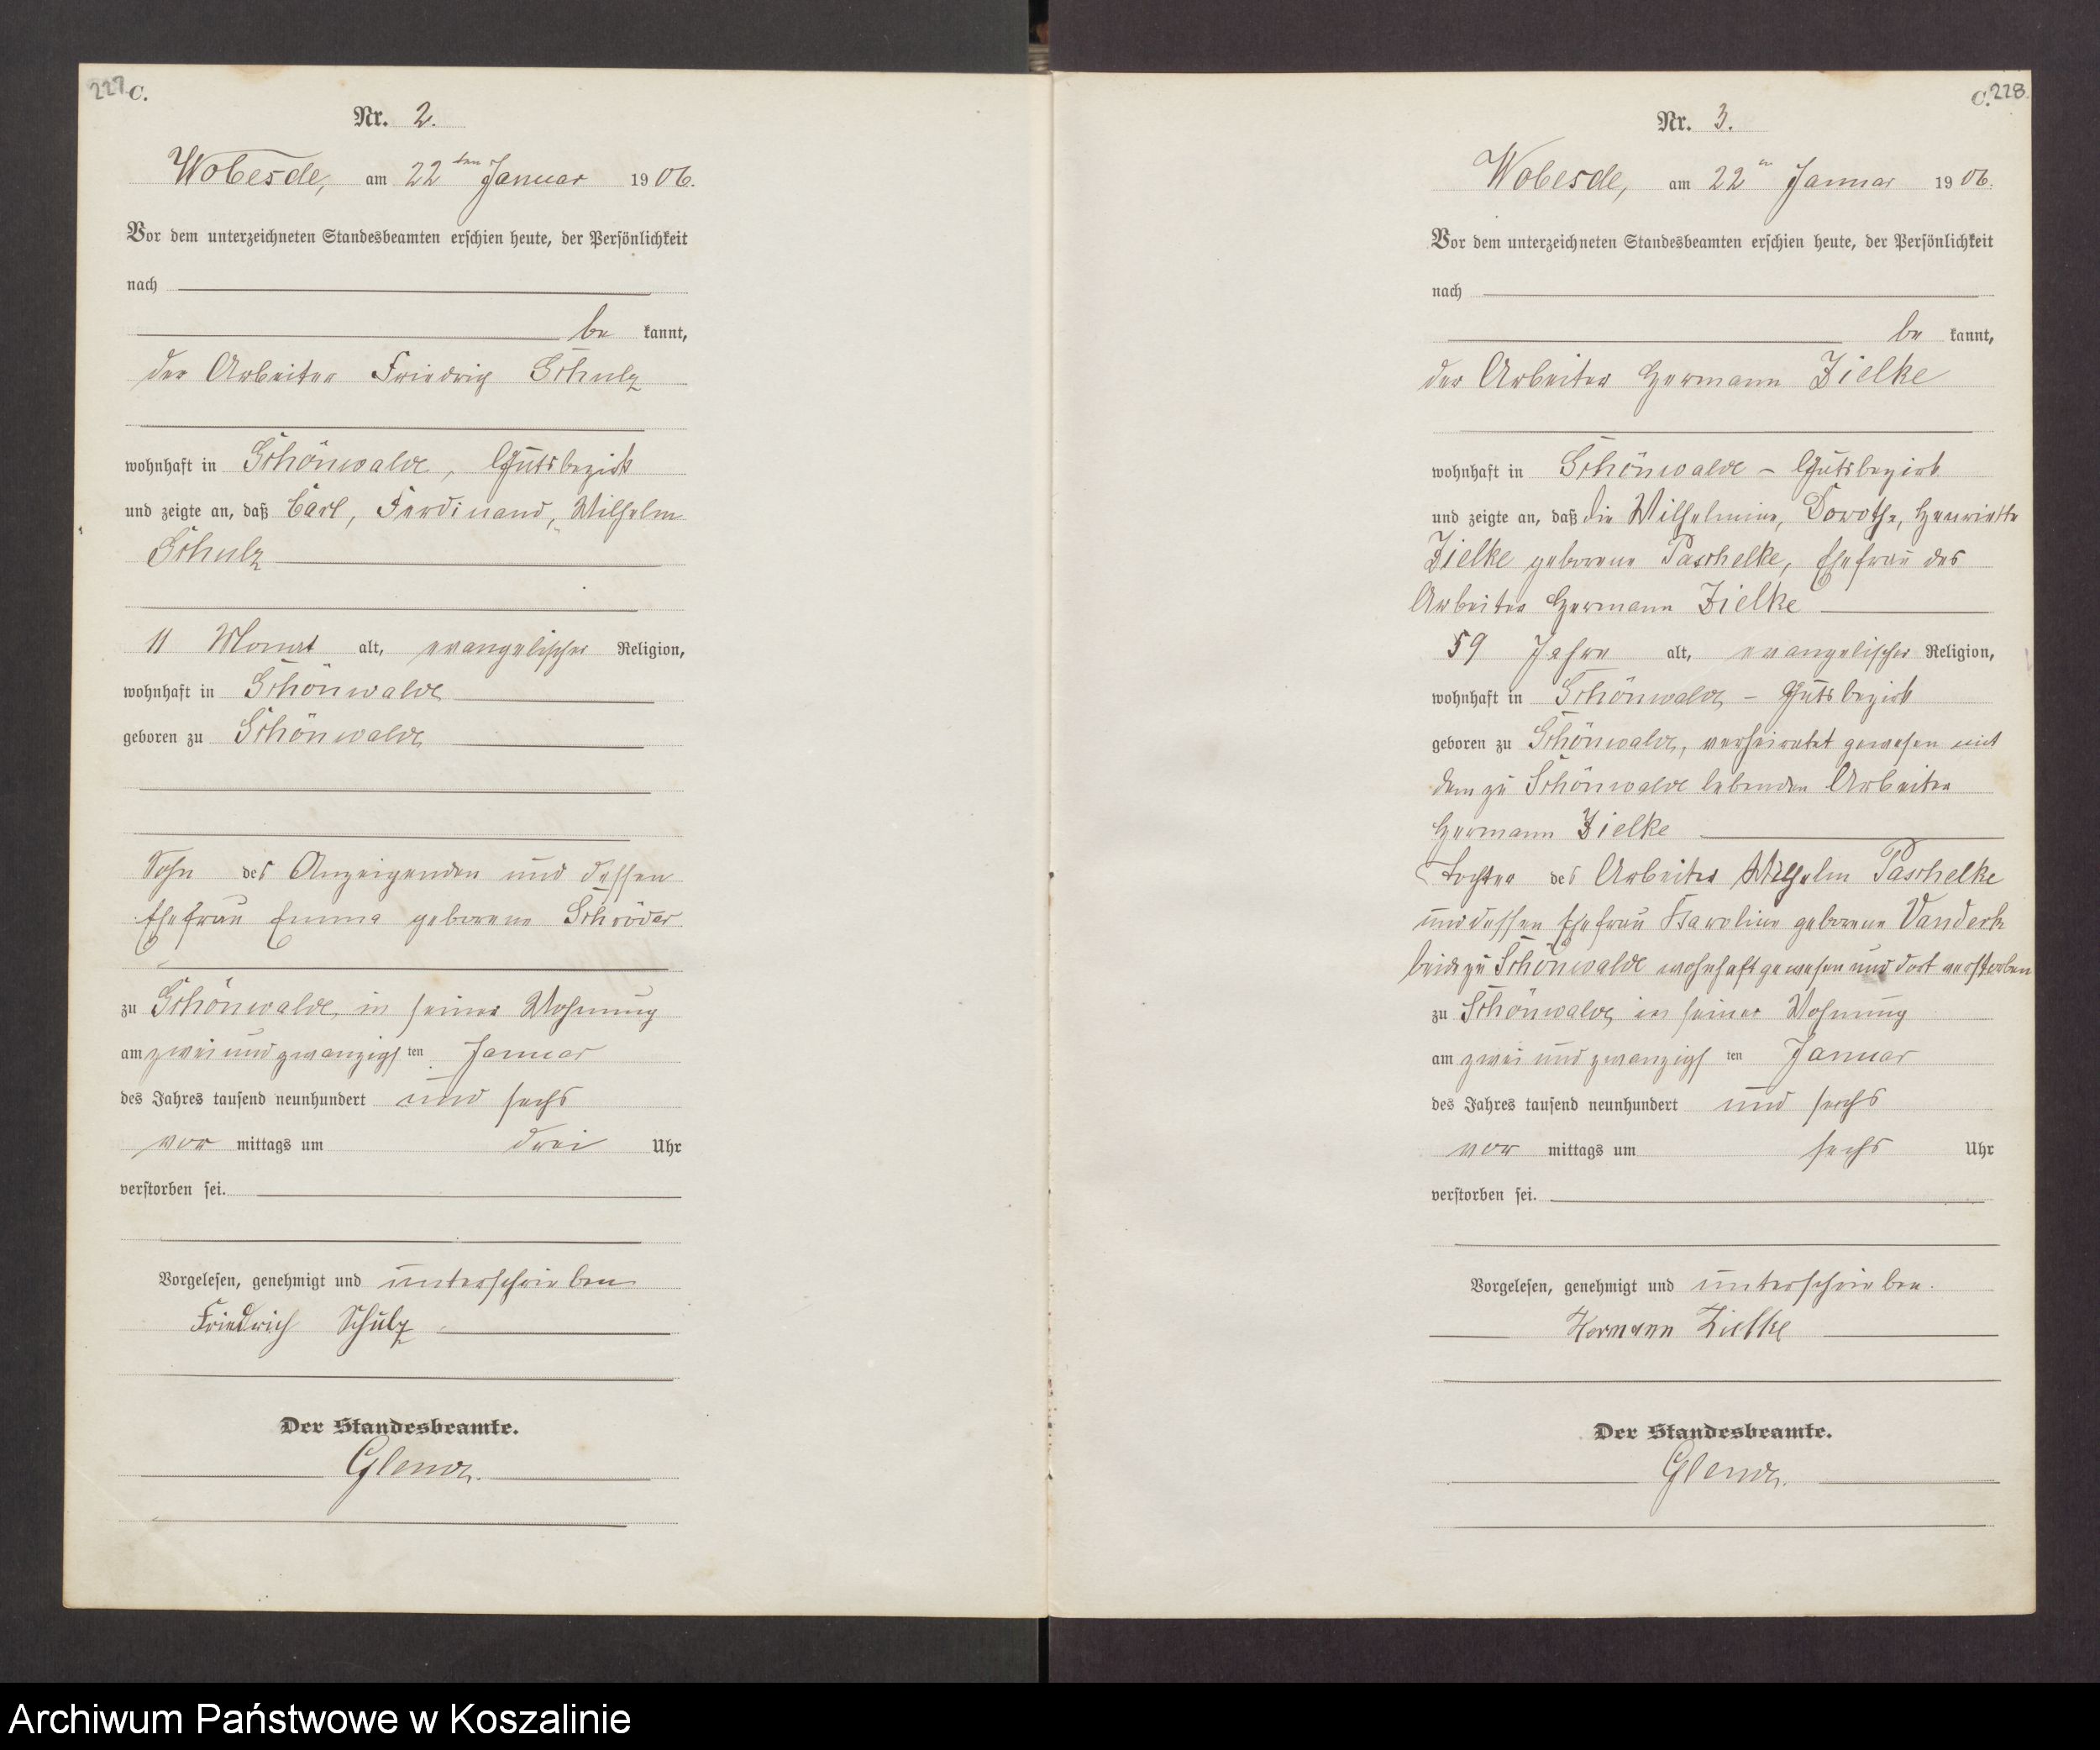 227 C.
Nr. 2.
Wobesde, am 22ten Januar 1906.
Vor dem unterzeichneten Standesbeamten erschien heute, der Persönlichkeit
nach
be kannt,
der Arbeiter Friedrich Schulz
wohnhaft in Schönwalde, Gutsbezirk
und zeigte an, daß Carl, Ferdinand, Wilhelm
Schulz
11 Monat alt, evangelischer Religion,
wohnhaft in Schönwalde
geboren zu Schönwalde
Sohn des Anzeigenden und dessen
Ehefrau Emma geborene Schröder
zu Schönwalde, in seiner Wohnung
am zwei und zwanzigs ten Januar
des Jahres tausend neunhundert und sechs
vor mittags um drei Uhr
verstorben sei.
Vorgelesen, genehmigt und unterschrieben
Friedrich Schulz
Der Standesbeamte.
C. 228.
Nr. 3.
Wobesde, am 22n Januar 1906.
Vor dem unterzeichneten Standesbeamten erschien heute, der Persönlichkeit
nach
be kannt,
der Arbeiter Hermann Zielke
wohnhaft in Schönwalde – Gutsbezirk
und zeigte an, daß die Wilhelmine, Dorothe, Henriette
Zielke geborene Paschelke, Ehefrau des
Arbeiter Hermann Zielke
59 Jahre alt, evangelischer Religion,
wohnhaft in Schönwalde – Gutsbezirk
geboren zu Schönwalde, verheiratet gewesen mit
dem zu Schönwalde lebenden Arbeiter
Hermann Zielke
Tochter des Arbeiter Wilhelm Paschelke
und dessen Ehefrau Karoline geborene
beide zu Schönwalde wohnhaft gewesen und dort verstorben
zu Schönwalde in seiner Wohnung
am zwei und zwanzigs ten Januar
des Jahres tausend neunhundert und sechs
vor mittags um sechs Uhr
verstorben sei.
Vorgelesen, genehmigt und unterschrieben.
Hermann Zielke
Der Standesbeamte.
Archiwum Państwowe w Koszalinie